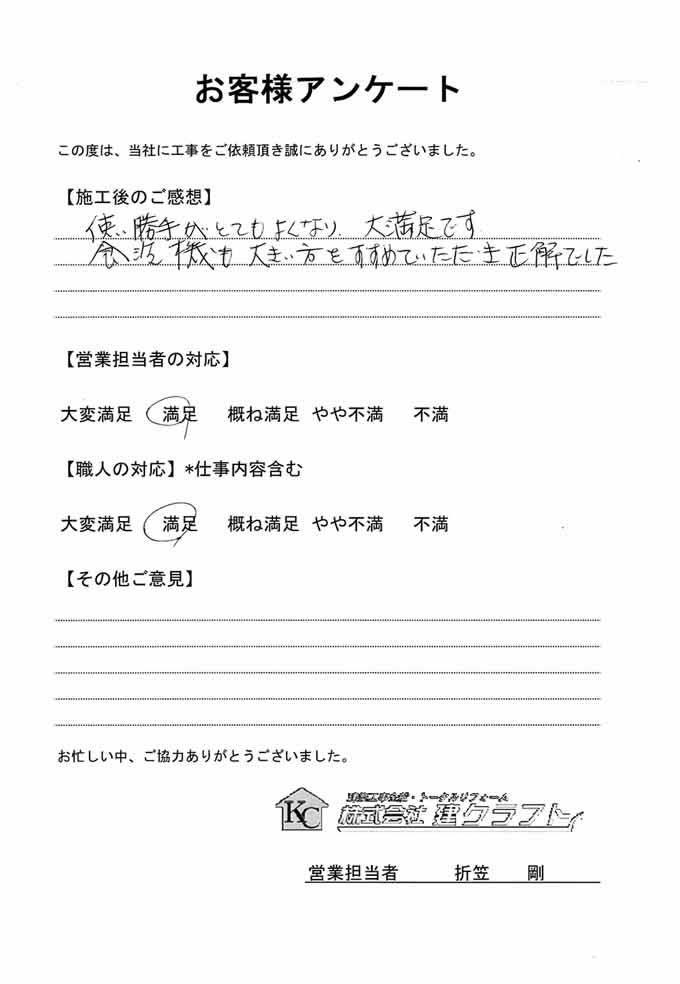 お客様アンケート
この度は、当社に工事をご依頼頂き誠にありがとうございました。
【施工後のご感想】
使い勝手がとてもよくなり、大満足です
食洗機も大きい方をすすめていただき正解でした
【営業担当者の対応】
大変満足 満足 概ね満足 やや不満 不満
【職人の対応】*仕事内容含む
大変満足 満足 概ね満足 やや不満 不満
【その他ご意見】
お忙しい中、ご協力ありがとうございました。
KC
建築工事全般・トータルリフォーム
株式会社 建クラフト
営業担当者 折笠 剛